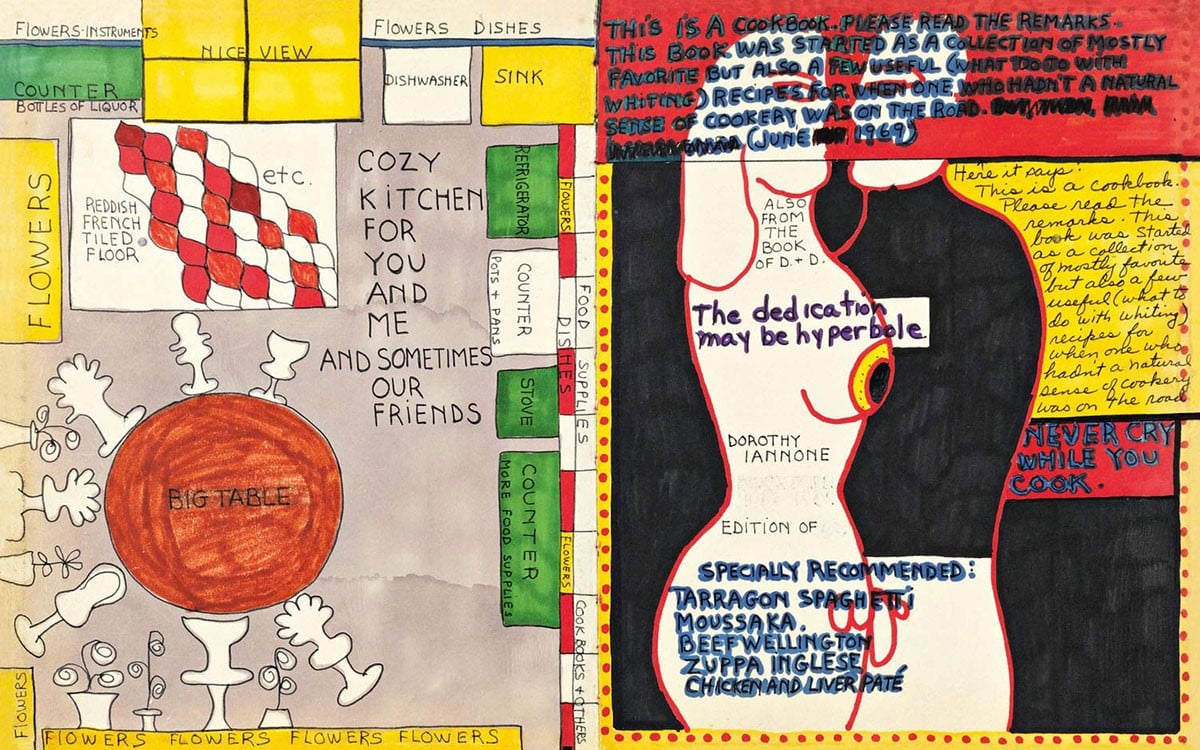 FLOWERS·INSTRUMENTS
NICE VIEW
FLOWERS DISHES
COUNTER
BOTTLES OF LIQUOR
DISHWASHER
SINK
FLOWERS
REDDISH
FRENCH
TILED
FLOOR
etc.
COZY
KITCHEN
FOR
YOU
AND
ME
AND SOMETIMES
OUR
FRIENDS
REFRIGERATOR
FLOWERS
COUNTER
POTS + PANS
FOOD SUPPLIES
DISHES
STOVE
COUNTER
MORE FOOD SUPPLIES
FLOWERS
COOK BOOKS + OTHERS
BIG TABLE
FLOWERS
FLOWERS FLOWERS FLOWERS FLOWERS
THIS IS A COOKBOOK. PLEASE READ THE REMARKS.
THIS BOOK WAS STARTED AS A COLLECTION OF MOSTLY
FAVORITE BUT ALSO A FEW USEFUL (WHAT TO DO WITH
WHITING) RECIPES FOR WHEN ONE WHO HADN'T A NATURAL
SENSE OF COOKERY WAS ON THE ROAD.
(JUNE 1969)
Here it says:
This is a cookbook.
Please read the
remarks. This
book was started
as a collection
of mostly favorite
but also a few
useful (what to
do with whiting)
recipes for
when one who
hadn't a natural
sense of cookery
was on the road
ALSO
FROM
THE
BOOK
OF D. + D.
The dedication
may be hyperbole
DOROTHY
IANNONE
EDITION OF
NEVER CRY
WHILE YOU
COOK.
SPECIALLY RECOMMENDED:
TARRAGON SPAGHETTI
MOUSSAKA.
BEEF WELLINGTON
ZUPPA INGLESE
CHICKEN AND LIVER PATÉ